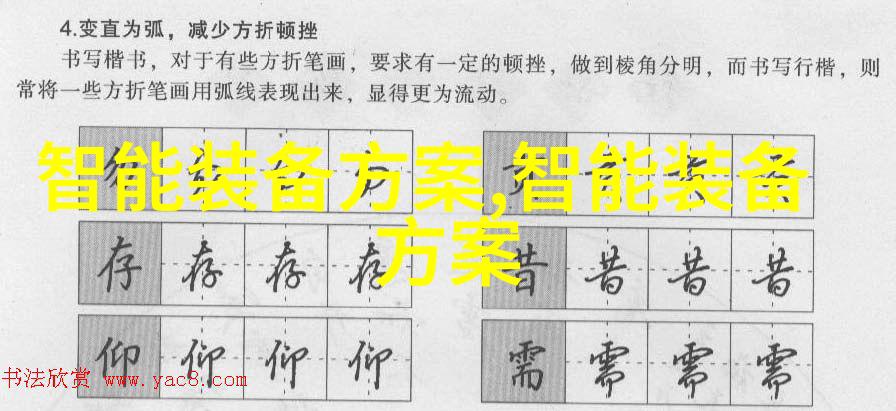 4.变直为弧，减少方折顿挫
书写楷书，对于有些方折笔画，要求有一定的顿挫，做到棱角分明，而书写行楷，则
常将一些方折笔画用弧线表现出来，显得更为流动。
智能装备方案,智能装备
方案
存 存 存 存
昔 昔 昔 昔
仰 仰 仰 仰
需 需 需 需
书法欣赏 www.yac8.com